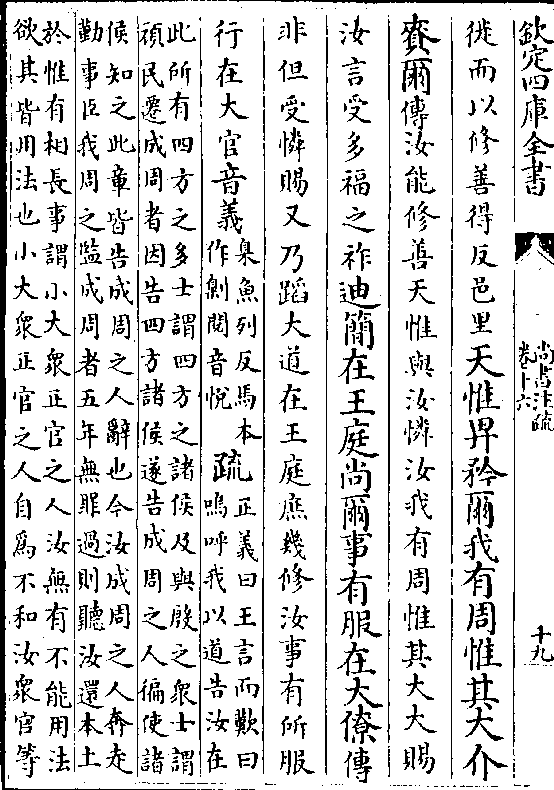 欽定四庫全書
尚書注疏
卷十六
十九
徙而以修善得反邑里天惟畀矜爾我有周惟其大介
賚爾傳汝能修善天惟與汝憐汝我有周惟其大大賜
汝言受多福之祚迪簡在王庭尚爾事有服在大僚傳
非但受憐賜又乃蹈大道在王庭庶幾修汝事有所服
行在大官音義
臬魚列反馬本
作劓閱音悅
疏
正義曰王言而歎曰
嗚呼我以道告汝在
此所有四方之多士謂四方之諸侯及與殷之衆士謂
頑民遷成周者因告四方諸侯遂告成周之人徧使諸
侯知之此章皆告成周之人辭也今汝成周之人奔走
勤事臣我周之監成周者五年無罪過則聽汝還本土
於惟有相長事謂小大衆正官之人汝無有不能用法
欲其皆用法也小大衆正官之人自為不和汝衆官等